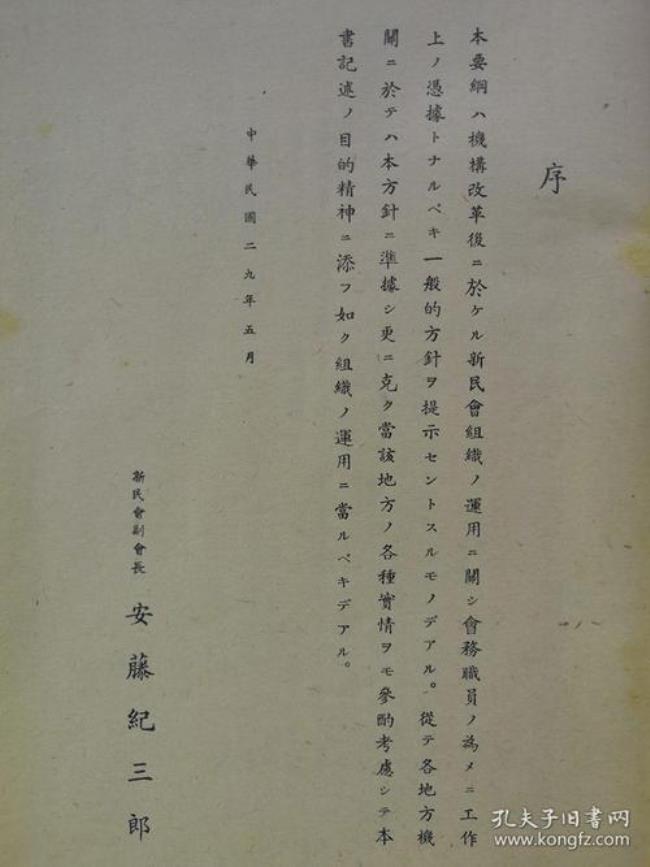 序
本要綱ハ機構改革後ニ於ケル新民會組織ノ運用ニ關シ會務職員ノ為メニ工作
上ノ憑據トナルベキ一般的方針ヲ提示セントスルモノデアル。從テ各地方機
關ニ於テハ本方針ニ準據シ更ニ克ク當該地方ノ各種實情ヲモ參酌考慮シテ本
書記述ノ目的精神ニ添フ如ク組織ノ運用ニ當ルベキデアル。
中華民國二九年五月
新民會副會長 安藤紀三郎
孔夫子旧書网
www.kongfz.com